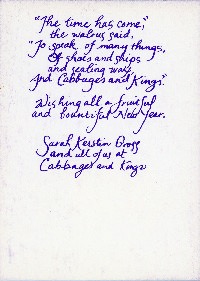 "The time has come,"
the walrus said,
"To speak of many things,
Of shoes and ships
and sealing wax
And Cabbages and Kings."
Wishing all a fruitful
and bountiful New Year.
Sarah Kersten Bross
and all of us at
Cabbages and Kings